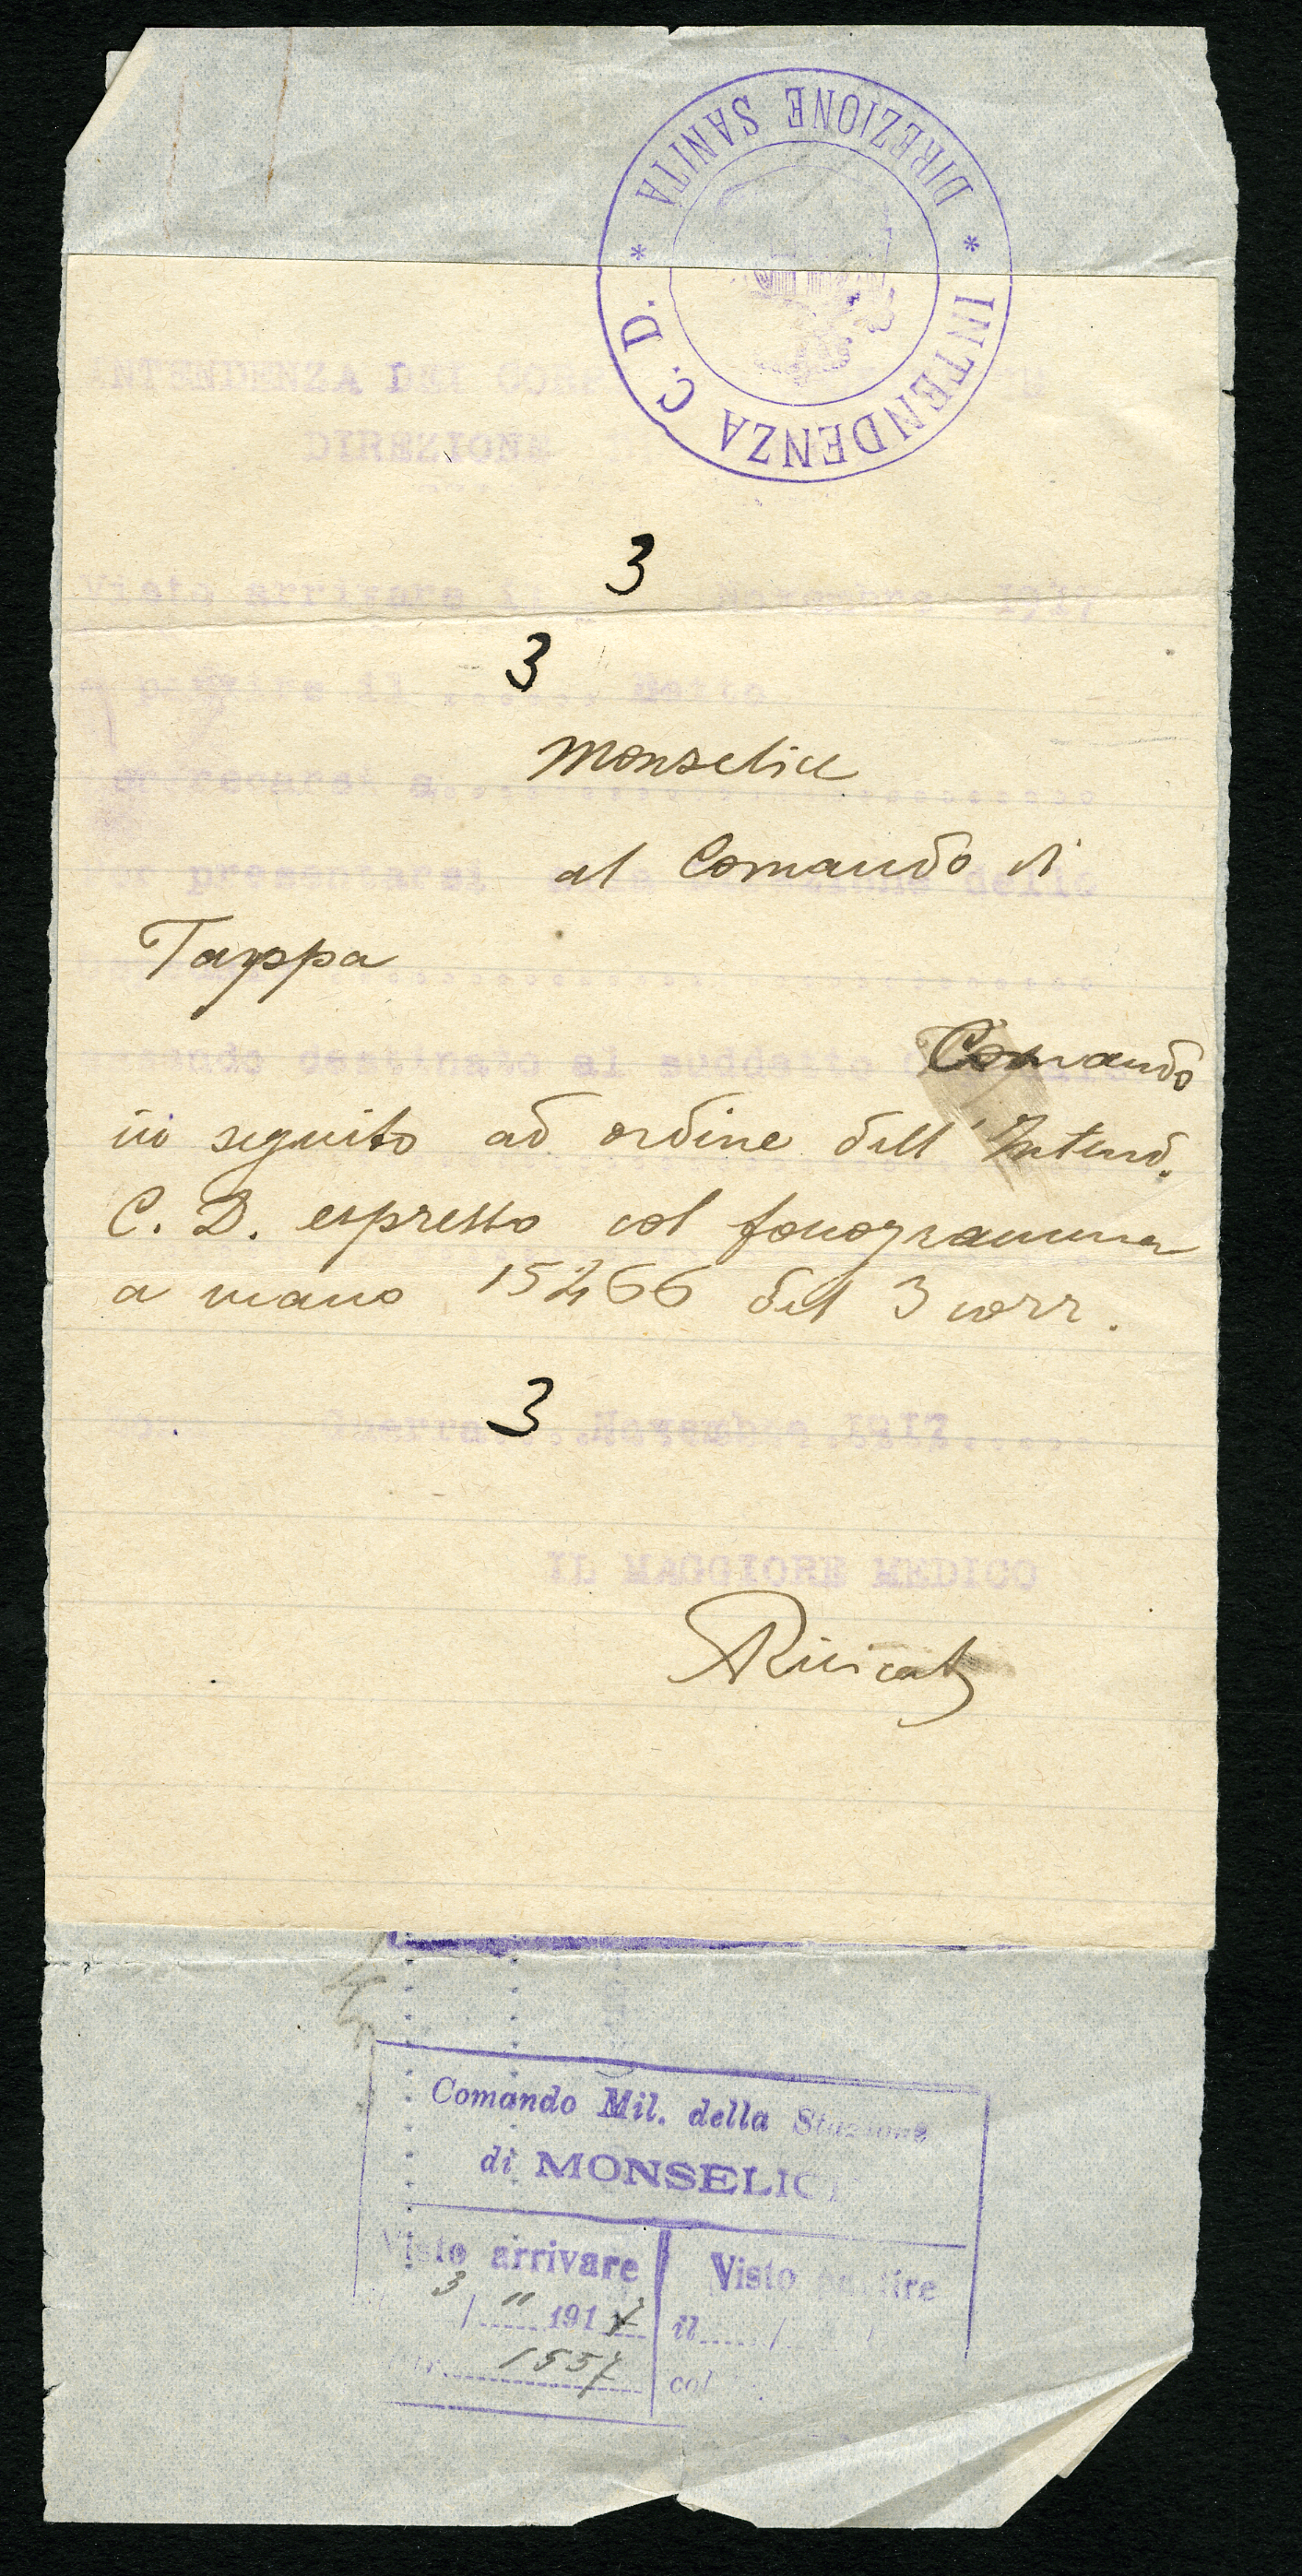 * DIREZIONE SANITA *
INTENDENZA C. D.
INTENDENZA DEL
DIREZIONE
3
Visto arrivare il Novembre 1917
3
partire il ...... detto
Monselice
recarsi a
al Comando di
presentarsi
Tappa
destinato al suddetto Comando
in seguito ad ordine dell'Intend.
C. D. espresso col fonogramma
a mano 15266 del 3 corr.
3
Guerra Novembre 1917
IL MAGGIORE MEDICO
Comando Mil. della Stazione
di MONSELICE
Visto arrivare
Visto partire
3 / 11 1917
il
1557
col